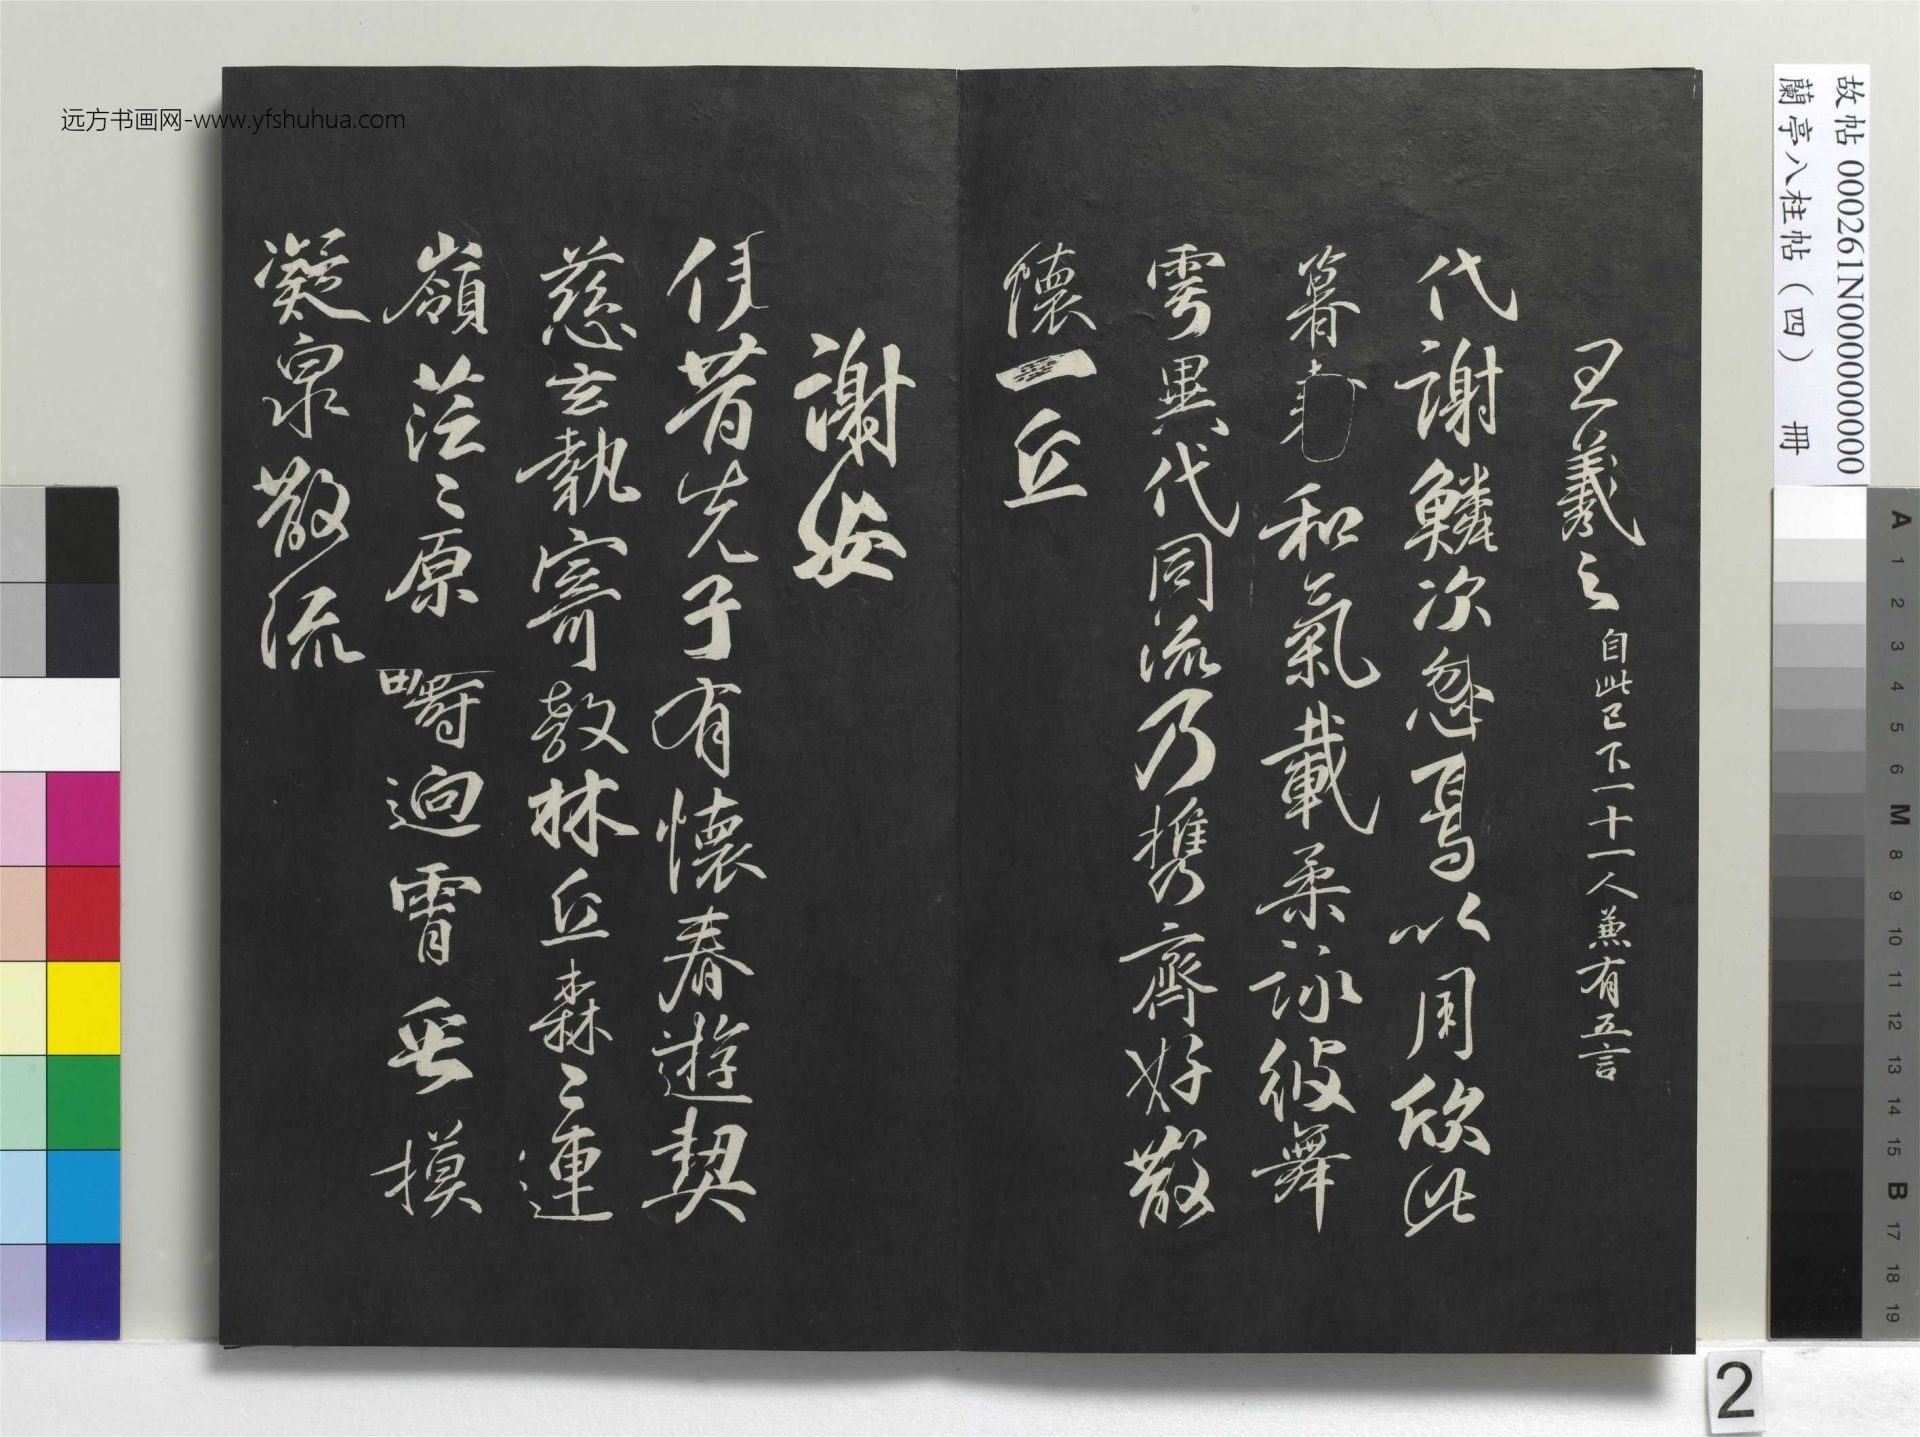 王羲之 自此已下一十一人兼有五言
代謝鱗次忽焉以周欣此
暮春和氣載柔詠彼舞
雩異代同流乃携齊好散
懷一丘
謝安
昔先子有懷春遊契
慈玄執寄敖林丘森〻連
嶺茫〻原疇迥霄垂
凝泉散流
故帖 000261N000000000
蘭亭八柱帖（四） 冊
远方书画网-www.yfshuhua.com
A 1 2 3 4 5 6 M 8 9 10 11 12 13 14 15 B 17 18 19
2